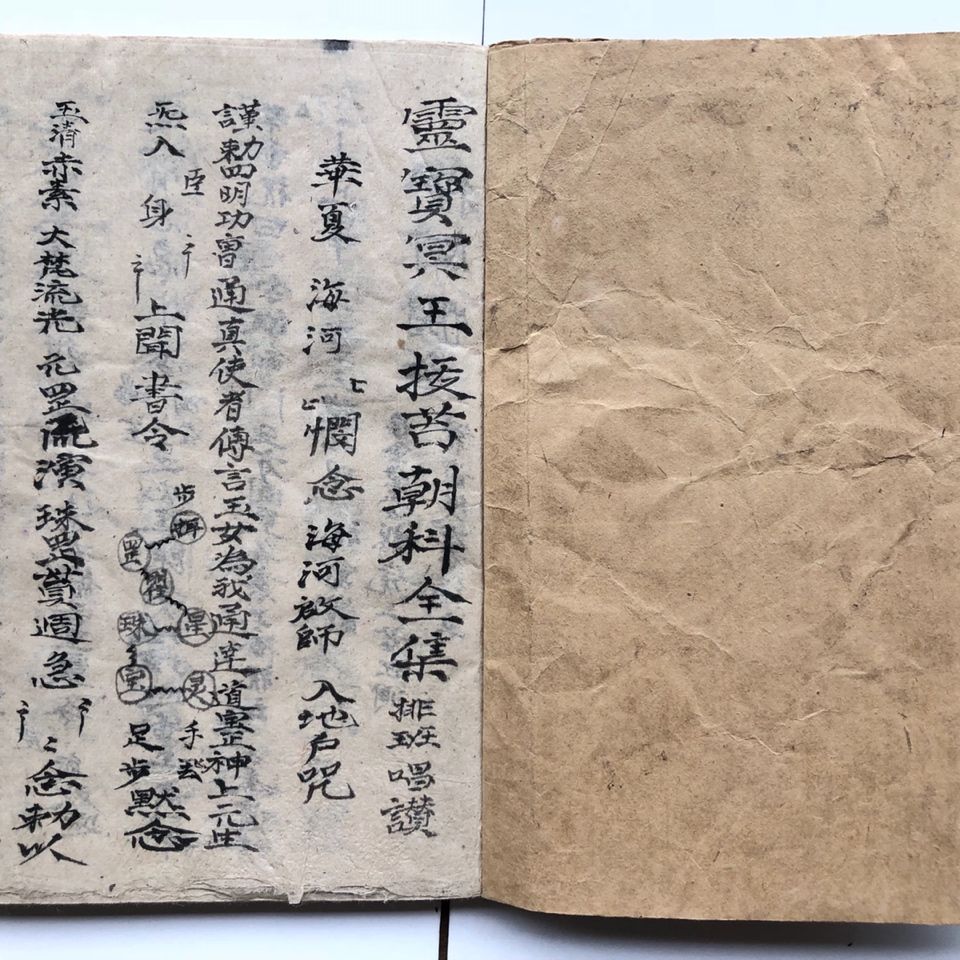 靈寶冥王拔苦朝科全集 排班唱讃
華夏 海河 憫念 海河啟師 入地户咒
謹勅四明功曹通真使者傳言玉女為我通達道靈神上元生
炁入臣身 上聞書令 步 罡 珠 星 灵 手 足步 默念
玉清赤素大梵流光 罡流演珠 週急 念勅以